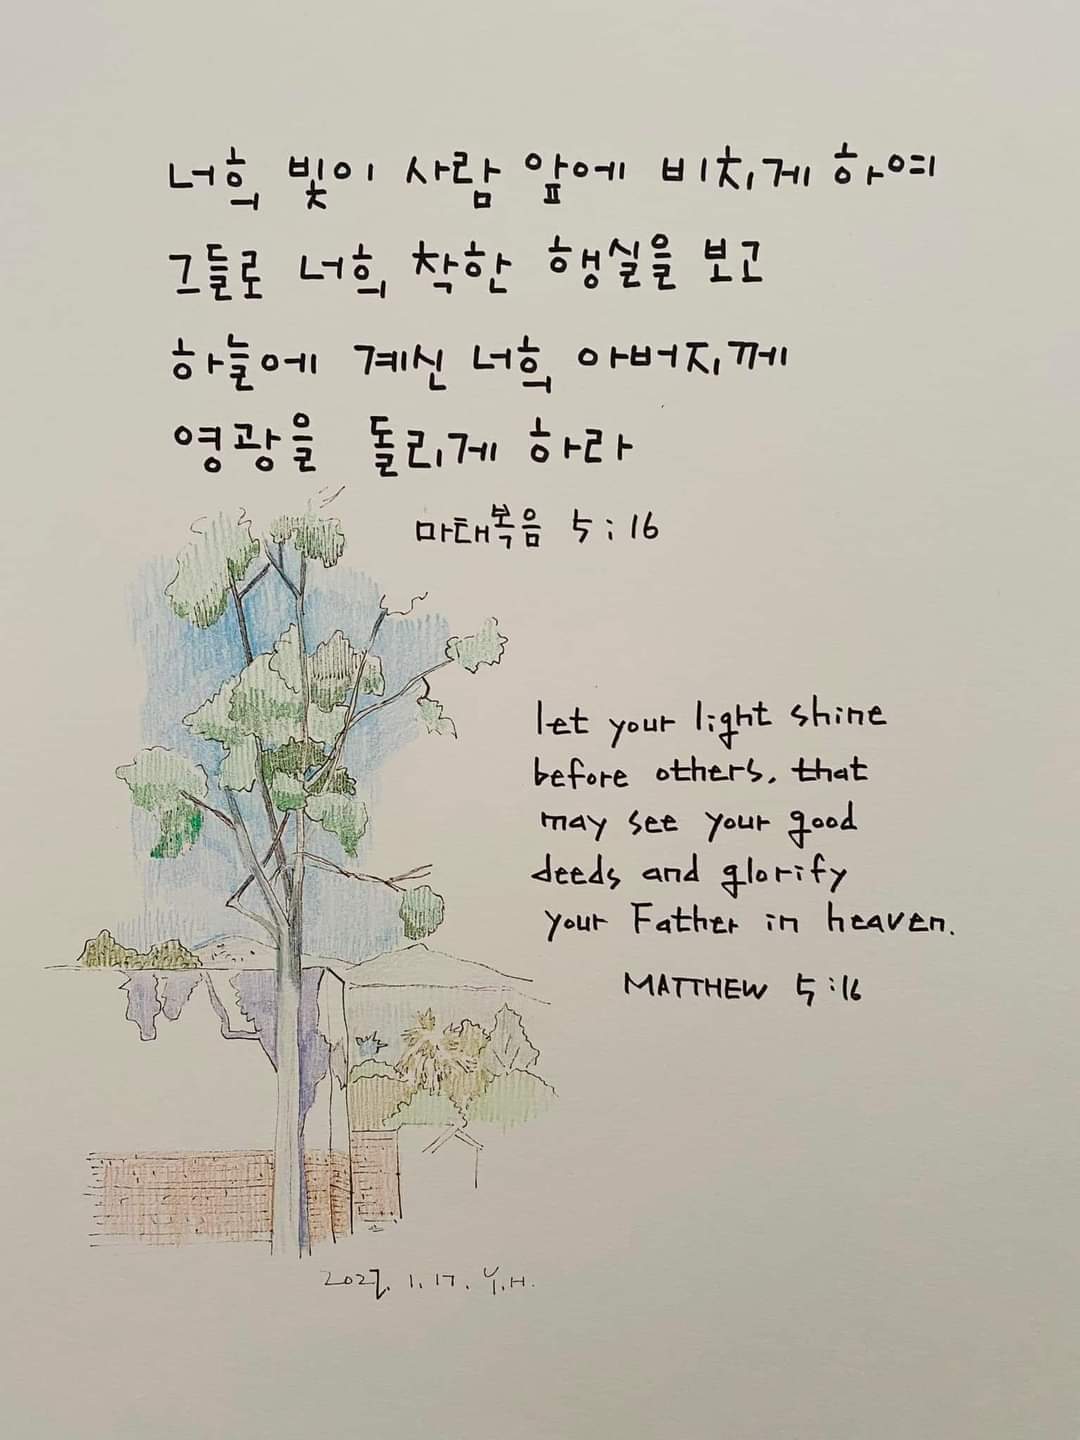 너희 빛이 사람 앞에 비치게 하여
그들로 너희 착한 행실을 보고
하늘에 계신 너희 아버지께
영광을 돌리게 하라
마태복음 5:16
let your light shine
before others, that
may see your good
deeds and glorify
your Father in heaven.
MATTHEW 5:16
1.17. Y.H.